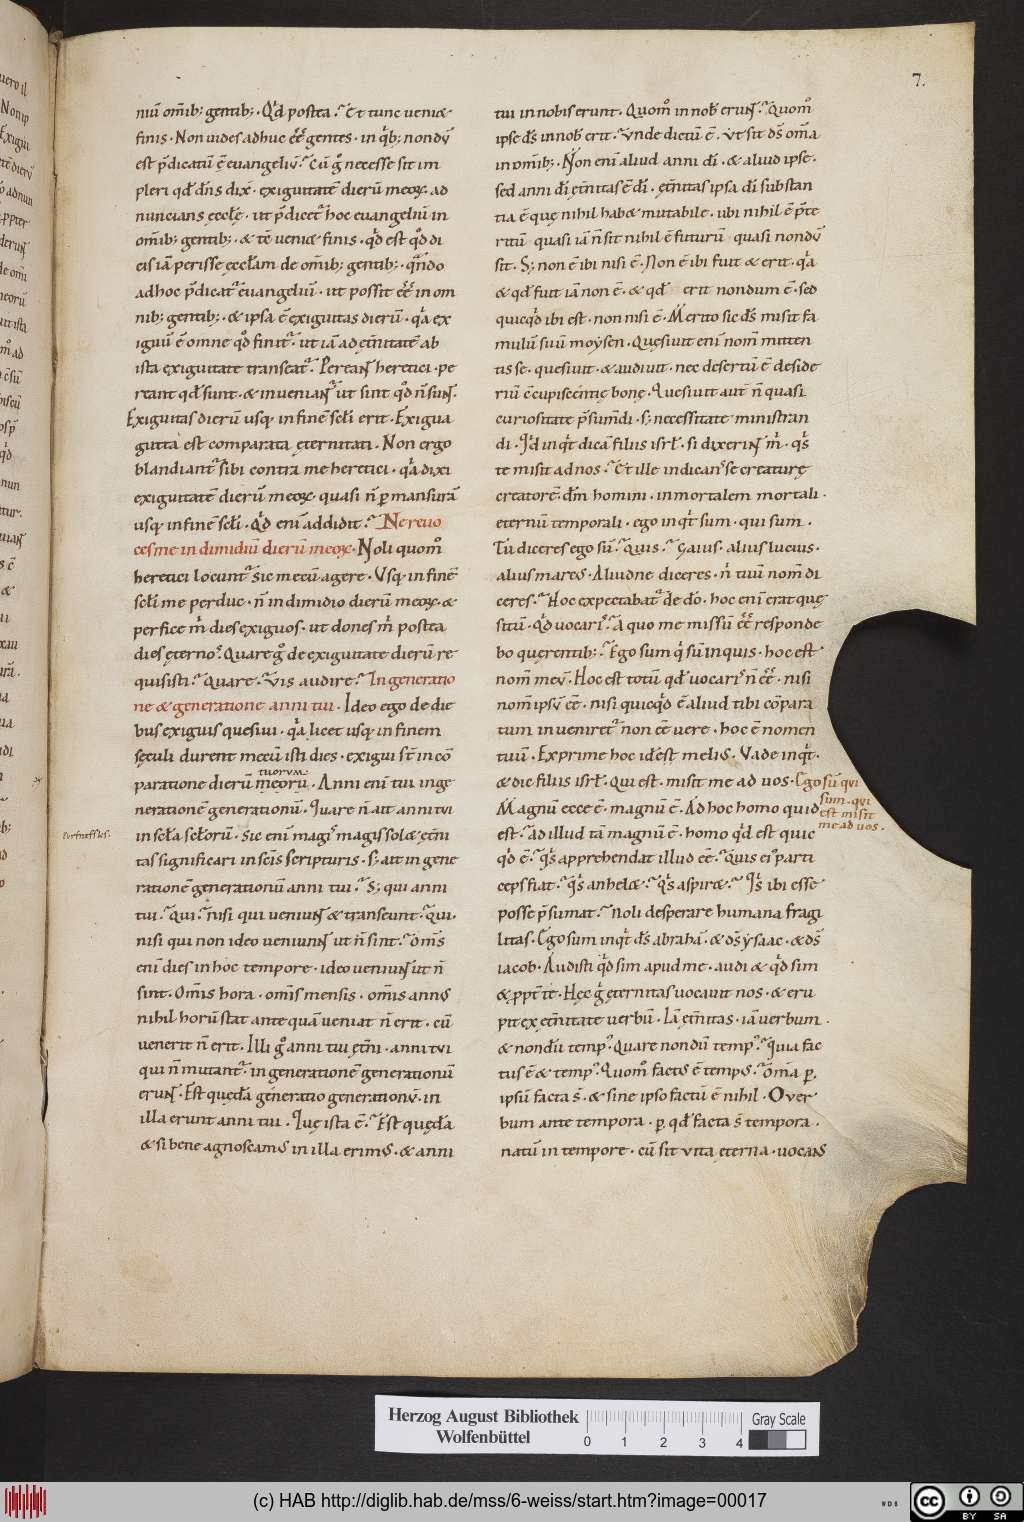 7.
niū om̄ib; gentib;. Qd̓ postea .᷄ Et tunc veni&
finis. Non uides adhuc ēē gentes. in q̓b; nondū
est p̄dicatū euangeliū .᷄ Cū g̊ necesse sit im
pleri qd̓ dn̄s dix̄. exiguitatē dierū meoꝝ ad
nuncians ęcclę. ut p̄dicet᷑ hoc euangeliū in
om̄ib; gentib;. & tē ueni& finis. qd̓ est qd̓ di
cis iā perisse ęccl̄am de om̄ib; gentib;. qn̄do
adhoc p̄dicat᷑ euangeliū. ut possit ēē in om
nib; gentib;. & ipsa ē exiguitas dierū. q̓a ex
iguū ē omne qd̓ finit᷑. ut iā ad ęt̄nitatē ab
ista exiguitate transeat᷑. Pereant heretici. pe
reant qd̓ sunt. & inueniant᷑ ut sint qd̓ n̄ sunt.
Exiguitas dierū usq; in finē sc̄li erit. Exigua
gutta est comparata ęternitati. Non ergo
blandiant᷑ sibi contra me heretici. q̓a dixi
exiguitatē dierū meoꝝ quasi n̄ ꝑmansurā
usq; in finē sc̄li. Qd̓ eni addidit .᷄ Ne reuo
ces me in dimidiū dierū meoꝝ. Noli quom̊
heretici locunt᷑ sic mecū agere. Usq; in finē
sc̄li me perduc. n̄ in dimidio dierū meoꝝ. &
perfice m̓ dies exiguos. ut dones m̓ postea
dies ęternos. Quare g̊ de exiguitate dierū re
quisisti .᷄ Quare .᷄ Vis audire .᷄ In generatio
ne & generatione anni tui. Ideo ego de die
bus exiguis quesiui. q̓a licet usq; in finem
sęculi durent mecū isti dies. exigui s̄t in cō
tuorum
paratione dierū meorū. Anni eni tui in ge
neratione generationū. Quare n̄ ait anni tui
Per fineſ ſcſ.
in sc̄la sc̄lorū. Sic eni magi᷑ magis solæ ęt̄ni
tas significari in sc̄is scripturis. S; ait in gene
ratione generationū anni tui .᷄ S; qui anni
tui .᷄ Qui .᷄ nisi qui ueniunt & transeunt .᷄ Qui.
nisi qui non ideo ueniunt ut n̄ sint .᷄ Om̄s
eni dies in hoc tempore. ideo ueniunt ut n̄
sint. Om̄is hora. om̄is mensis. om̄is annꝰ
nihil horū stat ante quā ueniat n̄ erit. cū
uenerit n̄ erit. Illi g̊ anni tui ęt̄ni. anni tui
qui n̄ mutant᷑. in generatione generationū
erunt. Est quędā generatio generationū. in
illa erunt anni tui. Quę ista ē .᷄ Est quędā
& si bene agnoscamꝰ in illa erimꝰ. & anni
tui in nobis erunt. Quom̊ in nob̄ erunt .᷄ Quom̊
ipse ds̄ in nob̄ erit. Vnde dictū ē. Vt sit ds̄ om̄a
in om̄ib;. Non eni aliud anni di. & aliud ipse.
sed anni di ęt̄nitas ē di. ęt̄nitas ipsa di substan
tia ē quę nihil hab& mutabile. ubi nihil ē p̄te
ritū quasi iā n̄ sit nihil ē futurū quasi nondū
sit. S; non ē ibi nisi ē. Non ē ibi fuit & erit. q̓a
& qd̓ fuit iā non ē. & qd̓ erit nondum ē. sed
quicqd̓ ibi est. non nisi ē. Merito sic ds̄ misit fa
mulū suū moysen. Quęsiuit eni nom̄ mitten
tis se. quesiuit. & audiuit. nec desertū ē deside
riū ē cupiscentię bonę. Quesiuit aut n̄ quasi
curiositate p̄sumdi. s; necessitate ministran
di. Qd̓ inq̓t dicā filiis isrl̄. si dixerint m̓. q̓s
te misit ad nos .᷄ Et ille indicans se creaturę
creatorē. dm̄ homini. inmortalem mortali.
eternū temporali. ego inq̓t sum. qui sum.
Tū diceres ego sū .᷄ Quis .᷄ Gaius. alius lucius.
alius marcꝰ. Aliudne diceres. n̓ tuū nom̄ di
ceres .᷄ Hoc expectabat᷑ de do. hoc eni erat quę
sitū. Qd̓ uocaris .᷄ A quo me missū ēē responde
bo quęrentib; .᷄ Ego sum q̓ sū inquis. hoc est
nom̄ meū. Hoc est totū qd̓ uocaris n̄ ēē. nisi
nom̄ ipsū ēē. nisi quicqd̓ ē aliud tibi cōpara
tum inueniret᷑ non ēē uere. hoc ē nomen
tuū. Exprime hoc idē melius. Vade inq̓t.
& dic filiis isrl̄. Qui est. misit me ad uos. Ego sū qui
sum. qui
est misit
me ad uos.
Magnū ecce ē. magnū ē. Ad hoc homo quid
est .᷄ Ad illud tā magnū ē. homo qd̓ est quic
qd̓ ē .᷄ q̓s apprehendat illud ēē .᷄ Quis ei᷑ parti
ceps fiat .᷄ q̓s anhel& .᷄ q̓s aspir& .᷄ q̓s ibi esse
posse p̄sumat .᷄ Noli desperare humana fragi
litas. Ego sum inq̓t ds̄ abrahā. & ds̄ ysaac. & ds̄
iacob. Audisti qd̓ sim apud me. audi & qd̓ sim
& ꝓpt̄ te. Hęc g̊ ęternitas uocauit nos. & eru
pit ex ęt̄nitate uerbū. Iā ęt̄nitas. iā uerbum.
& nondū tempꝰ. Quare nondū tempꝰ .᷄ Quia fac
tus ē & tempꝰ. Quom̊ factꝰ ē tempꝰ .᷄ Om̄a ꝑ
ipsū facta s̄. & sine ipso factū ē nihil. O uer
bum ante tempora. ꝑ qd̓ facta s̄ tempora.
natū in tempore. cū sit uita ęterna. uocans
Herzog August Bibliothek
Wolfenbüttel
0 1 2 3 4
Gray Scale
(c) HAB http://diglib.hab.de/mss/6-weiss/start.htm?image=00017
WDB
cc
BY SA